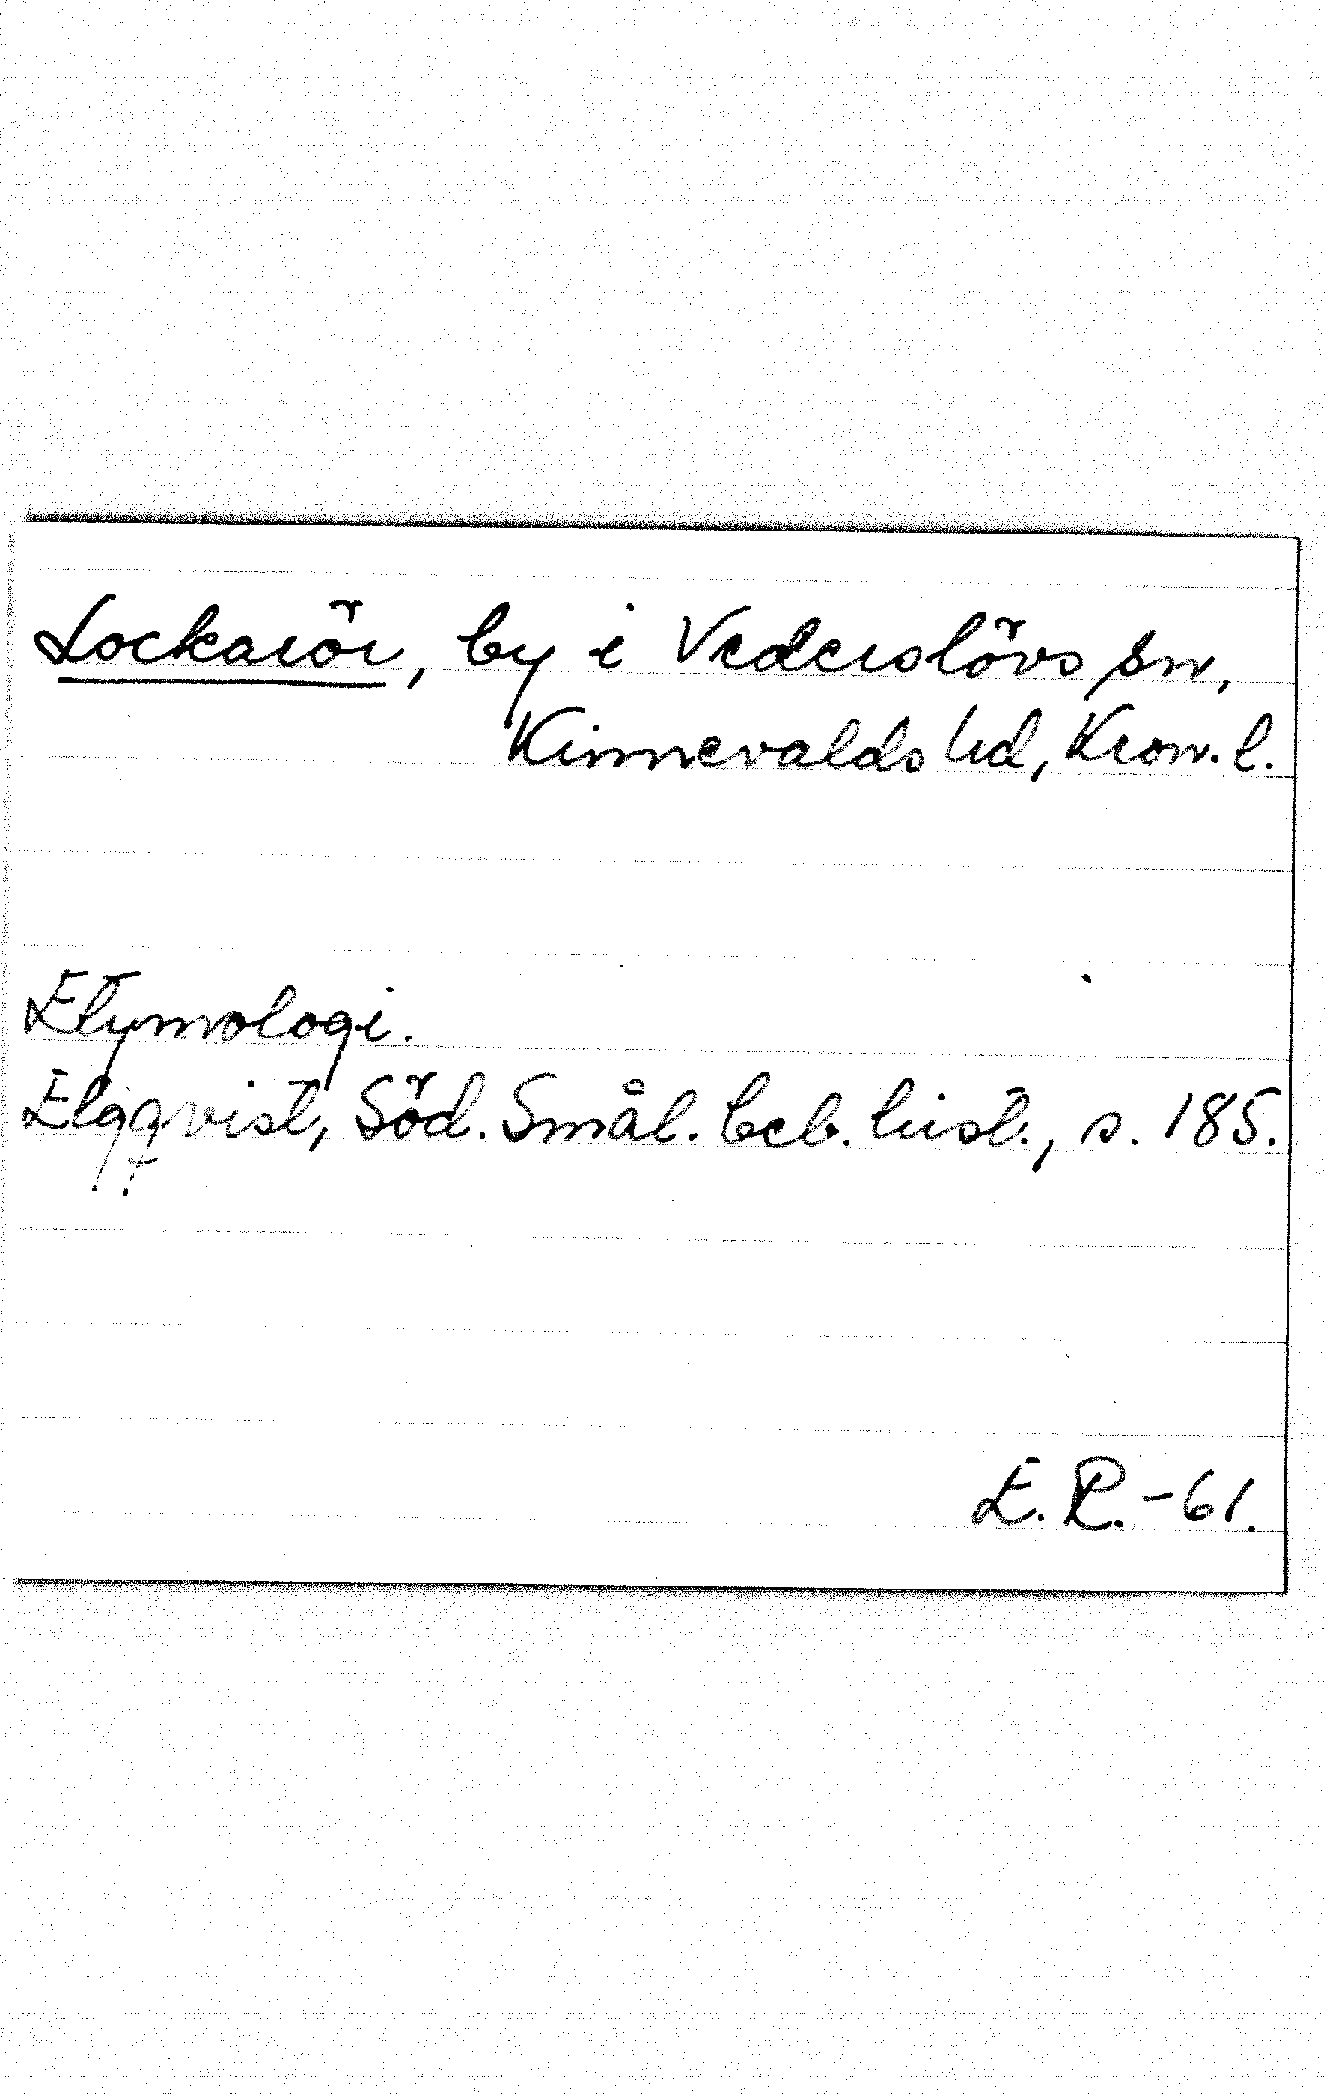 Lockarör, by i Vederslövs sn,
Kinnevalds hd, Kron. l.
Etymologi.
Elgqvist, Söd. Smål. beb. hist., s. 185.
E. R. -61.